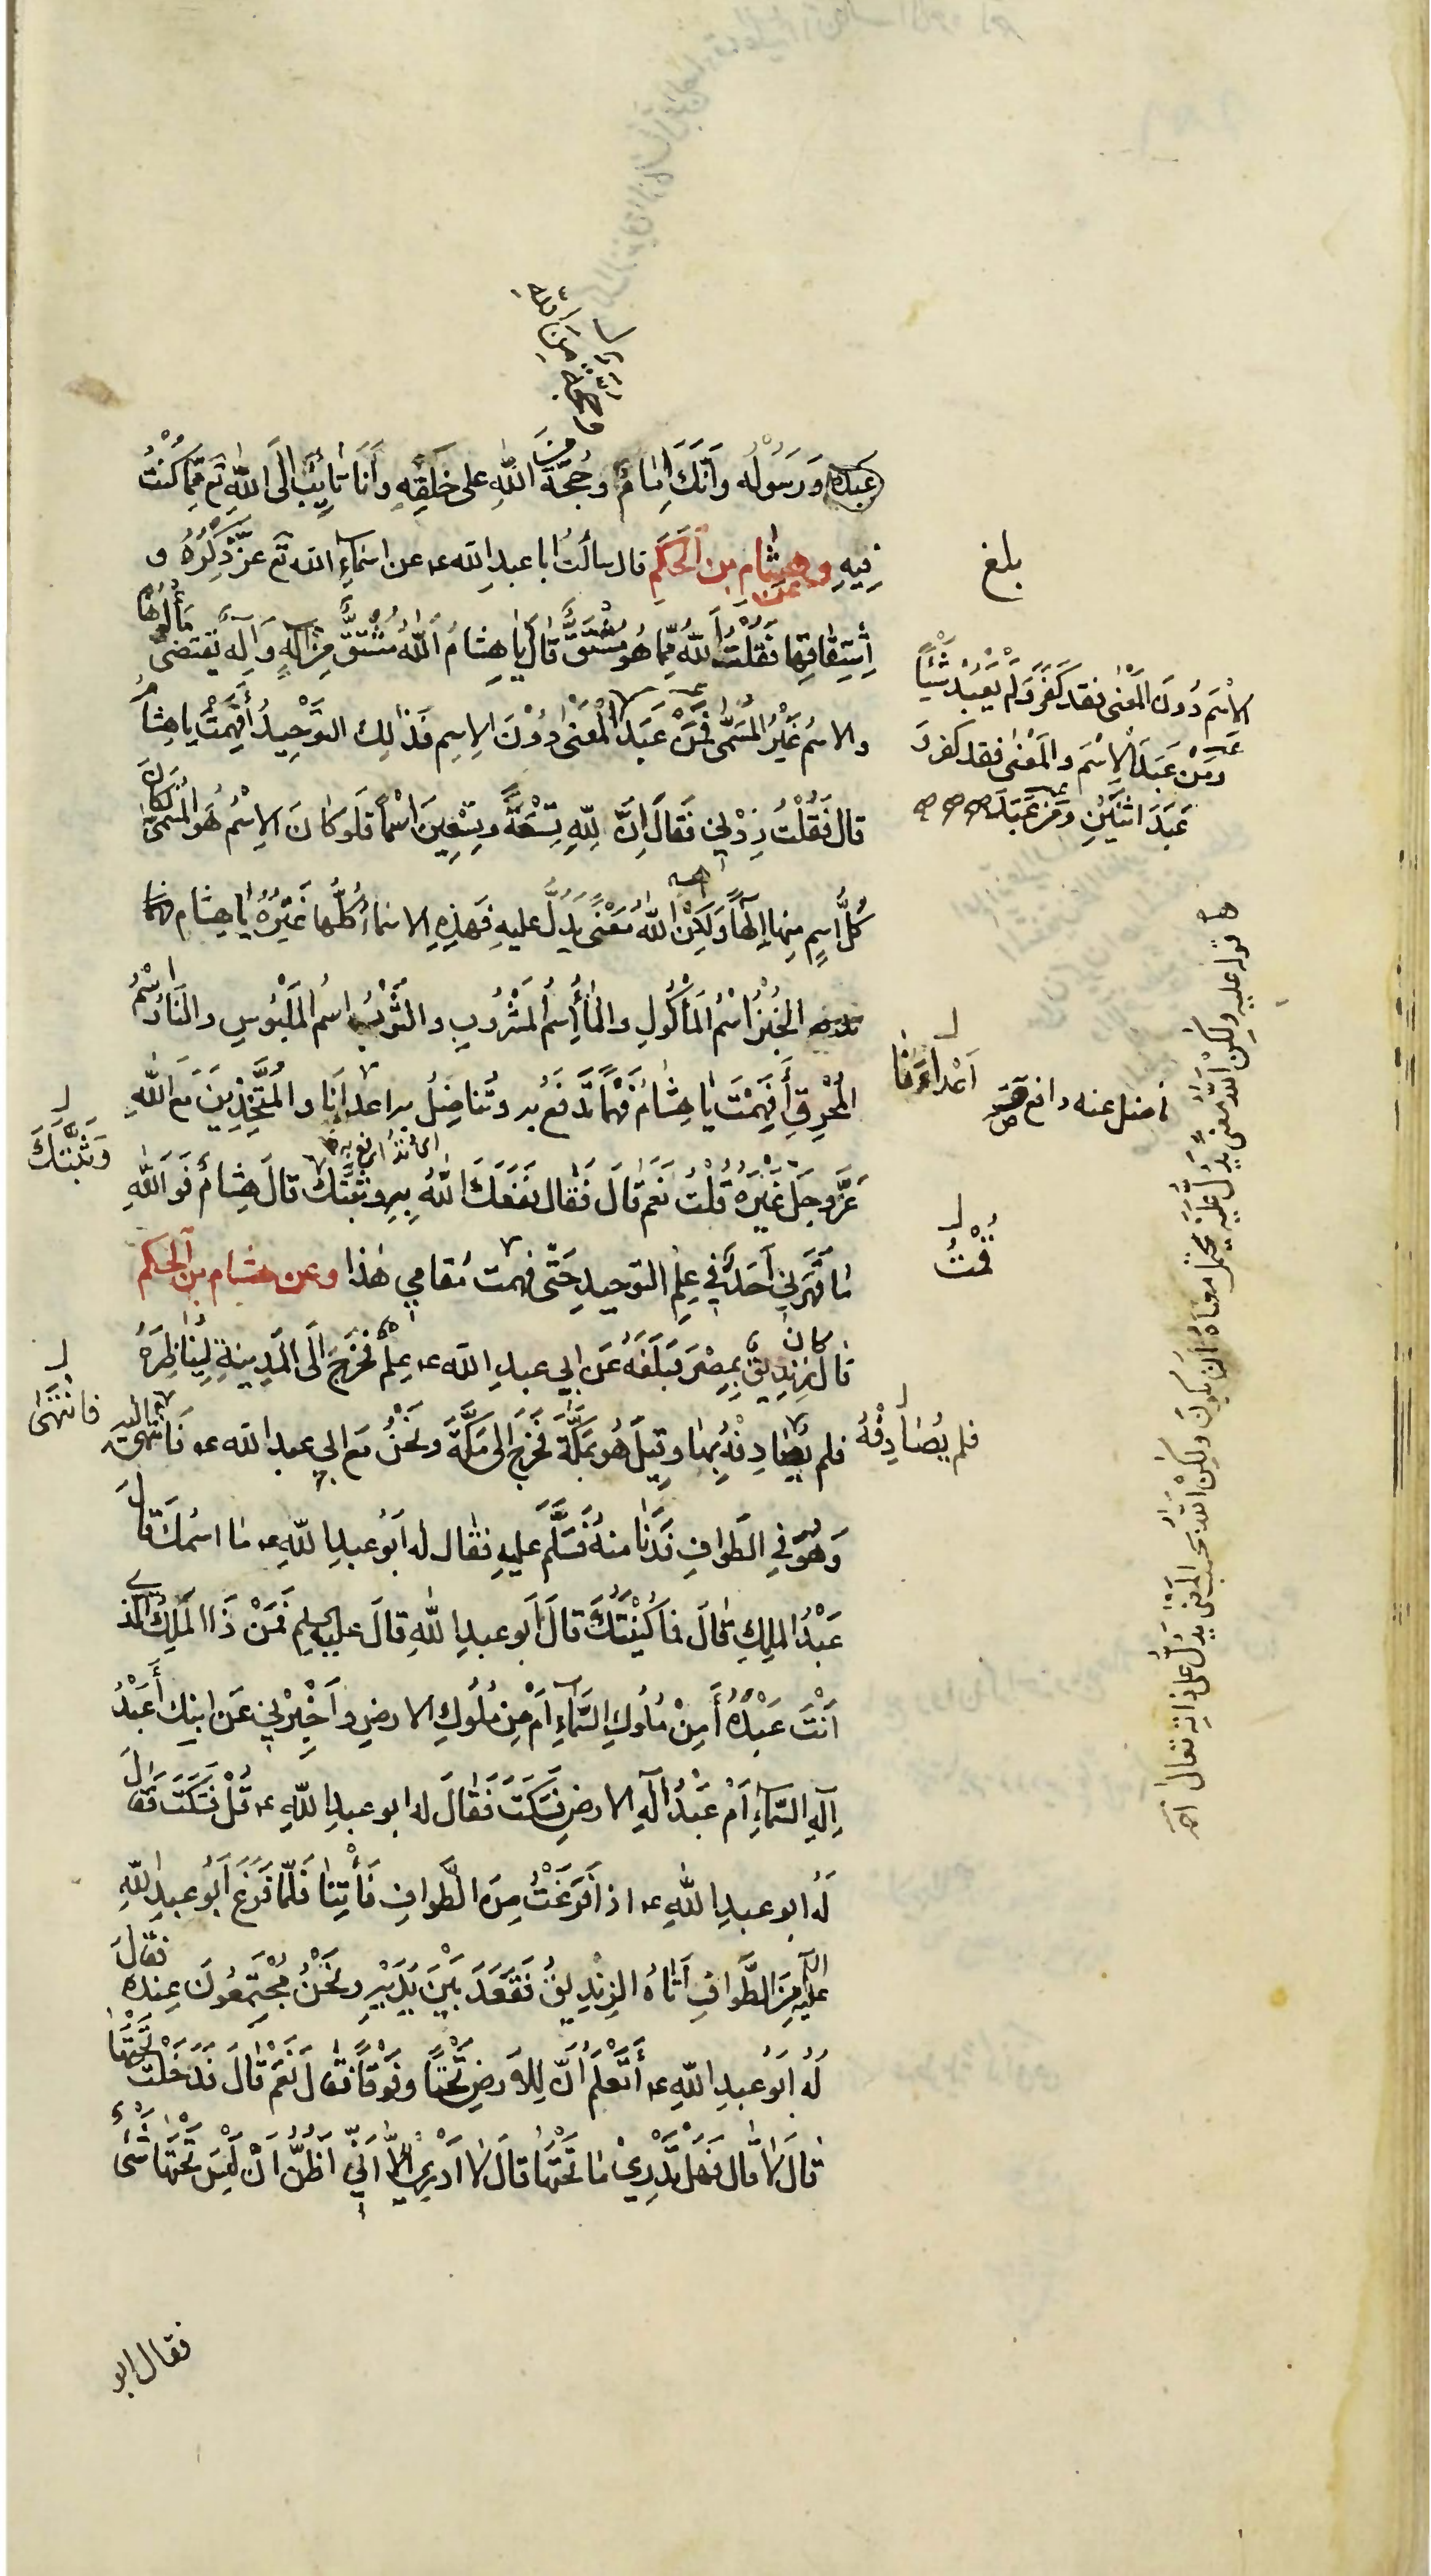 عبده وَرَسُولُه وَأَنَّكَ إِمَامٌ وحُجَّةٌ مِنَ اللهِ على خَلْقِهِ وأَنَا تَائِبٌ إلَى اللهِ تَع مِمَّا كُنْتُ
فِيهِ وعن هشام بن الحَكَمِ قال سألتُ ابا عبدِ الله ع عن اسْمَاءِ الله تَع عَزَّ ذِكْرُهُ و
اِشْتِقَاقِها فَقُلْتُ اللهُ مِمَّا هُوَ مُشْتَقٌّ قَالَ يَا هِشَامُ اَللهُ مُشْتَقٌّ مِنْ اِلَهٍ وَاِلَهٌ يَقْتَضِي مَأْلُوهًا
والاسْمُ غَيْرُ المُسَمَّى فَمَنْ عَبَدَ الْمَعْنَى دُوْنَ الاِسِم فَذٰلِك التَّوْحِيدُ أَفَهِمْتَ يا هِشَامُ
قال فَقُلْتُ زِدْنِي فَقَالَ اِنَّ لِلّهِ تِسْعَةً وتِسْعِينَ اسْمًا فَلَو كَانَ الاِسْمُ هُوَ المُسَمَّى لَكَانَ
كُلُّ اسِمٍ مِنها اِلٰهًا وَلَكِنْ اللهُ مَعْنًى يَدُلُّ عليهِ فَهٰذِهِ الاسْمَاءُ كُلُّها غَيْرُهُ يَا هِشَام
الخُبْزُ اسْمُ المَأْكُولِ والْمَاءُ اِسْمُ المَشْرُوبِ والثَّوْبُ اسمُ المَلْبُوسِ والنَّارُ اسْمُ
المُحْرِقِ أَفَهِمْتَ يَا هِشَامُ فَهْمًا تَدْفَعُ به وتُنَاضِلُ به اعداءَنا والمُتَّخِذِينَ مَعَ اللهِ
عَزَّ وجَلَّ غَيْرَهُ قُلْتُ نَعَم قَالَ فَقَال نَفَعَكَ اللهُ بِهِ وثَبَّتَكَ قالَ هِشَامٌ فَوَ اللهِ
مَا قَهَرَنِي أَحَدٌ فِي عِلمِ التوحيدِ حَتَّى قمت مَقَامِي هٰذا وعن هشام بن الحكم
قَال كان زِنْدِيقٌ بِمِصْرَ فَبَلَغَهُ عَن ابي عبدِ الله ع عِلمٌ فَخَرَجَ الَى المَدِينةِ لِيُنَاظِرَهُ
فلم يُصَادِفْهُ بِها وقِيلَ هُو بِمَكَّةَ فَخَرَجَ الى مَكَّةَ ونَحْنُ مَع ابي عبد الله ع فَانْتَهَى اليه
وَهُوَ فِي الطَّوافِ فَدَنَا مِنهُ فَسَلَّمَ عليهِ فقَال له أَبُو عبدِ اللهِ ع مَا اسْمكَ قَالَ
عَبْدُ المَلِكِ قَالَ فما كُنْيَتُكَ قالَ أَبو عبدِ اللهِ قالَ عليه السلم فَمَنْ ذَا المَلِكُ الَّذِي
اَنْتَ عَبْدُهُ أَمِنْ مُلُوكِ السَّمَاءِ أَمْ مِن مُلُوكِ الارضِ وأَخْبِرْنِي عَن ابنِك أَعَبْدُ
اِلٰهِ السَّمَاءِ أَمْ عَبْدُ اِلٰهِ الارضِ فَسَكَتَ فَقَالَ له ابو عبدِ اللهِ ع قُلْ فَسَكَتَ فَقَالَ
لَهُ ابو عبدِ اللهِ ع اذا فَرَغْتُ مِنَ الطَّوافِ فَأْتِنَا فَلَمَّا فَرَغَ أَبُو عبدِ اللهِ
عليه السلم مِنَ الطَّوافِ أَتَاهُ الزِّنْدِيقُ فَقَعَدَ بَيْنَ يَدَيْهِ ونَحْنُ مُجْتَمِعُونَ عِنده فَقَالَ
لَهُ أَبُو عبدِ اللهِ ع أَتَعْلَمُ أَنَّ لِلارضِ تَحْتًا وفَوْقًا فقَالَ نَعَم قَالَ فَدَخَلْتَ تَحْتَهَا
قالَ لَا قَال فَهَل تَدْرِيْ مَا تَحْتَهَا قَالَ لا ادرِي اِلَّا اَنِّي أَظُنُّ اَنْ لَيْسَ تَحْتَهَا شَيْءٌ
فقال ابو
بلغ
الاسْم دُونَ المَعْنَى فقد كَفَرَ وَلَم يَعْبُد شَيْئًا
ومَنْ عَبَدَ الاِسْمَ والمَعْنَى فقد كفر وَ
عَبَدَ اثنَيْنِ ومَن عَبَدَ
اَعْدَاءَنَا
ناضل عنه دافع
قُمْتُ
فلم يُصَادِفْهُ
وَثَبَّتَكَ
فانْتَهَى
قوله عليه ولكِن اللهُ معنًى يَدُلُّ عَلَيْهِ يحتمل معناهُ ان يكون ولكن اللهُ بحسب المَعْنَى يَدُلُّ على ذاته تعالى